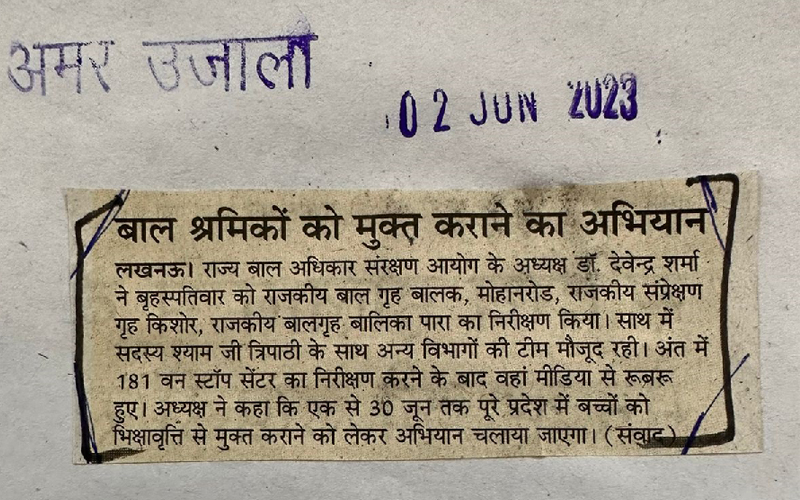 अमर उजाला
02 JUN 2023
बाल श्रमिकों को मुक्त कराने का अभियान
लखनऊ। राज्य बाल अधिकार संरक्षण आयोग के अध्यक्ष डॉ. देवेन्द्र शर्मा
ने बृहस्पतिवार को राजकीय बाल गृह बालक, मोहानरोड, राजकीय संप्रेक्षण
गृह किशोर, राजकीय बालगृह बालिका पारा का निरीक्षण किया। साथ में
सदस्य श्याम जी त्रिपाठी के साथ अन्य विभागों की टीम मौजूद रही। अंत में
181 वन स्टॉप सेंटर का निरीक्षण करने के बाद वहां मीडिया से रूबरू
हुए। अध्यक्ष ने कहा कि एक से 30 जून तक पूरे प्रदेश में बच्चों को
भिक्षावृत्ति से मुक्त कराने को लेकर अभियान चलाया जाएगा। (संवाद)